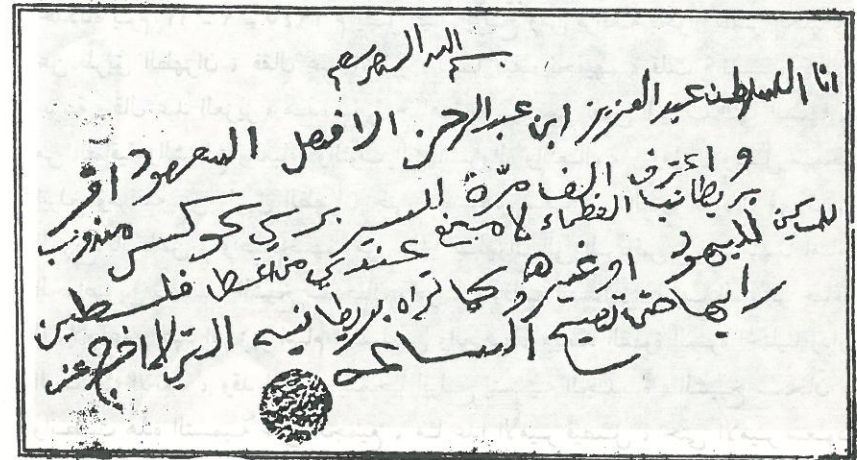 بسم الله الرحمن الرحيم
انا السلطان عبد العزيز ابن عبد الرحمن الافيصل السعود اقر
و اعترف الف مرّة السير برسي كوكس مندوب
بريطانيا العظماء لا مانع عندي من اعطا فلسطين
للمساكين لليهود او غيرهم وكما تراه بريطانيه التي لا اخرج عن
رايها حتى تصيح الساعه